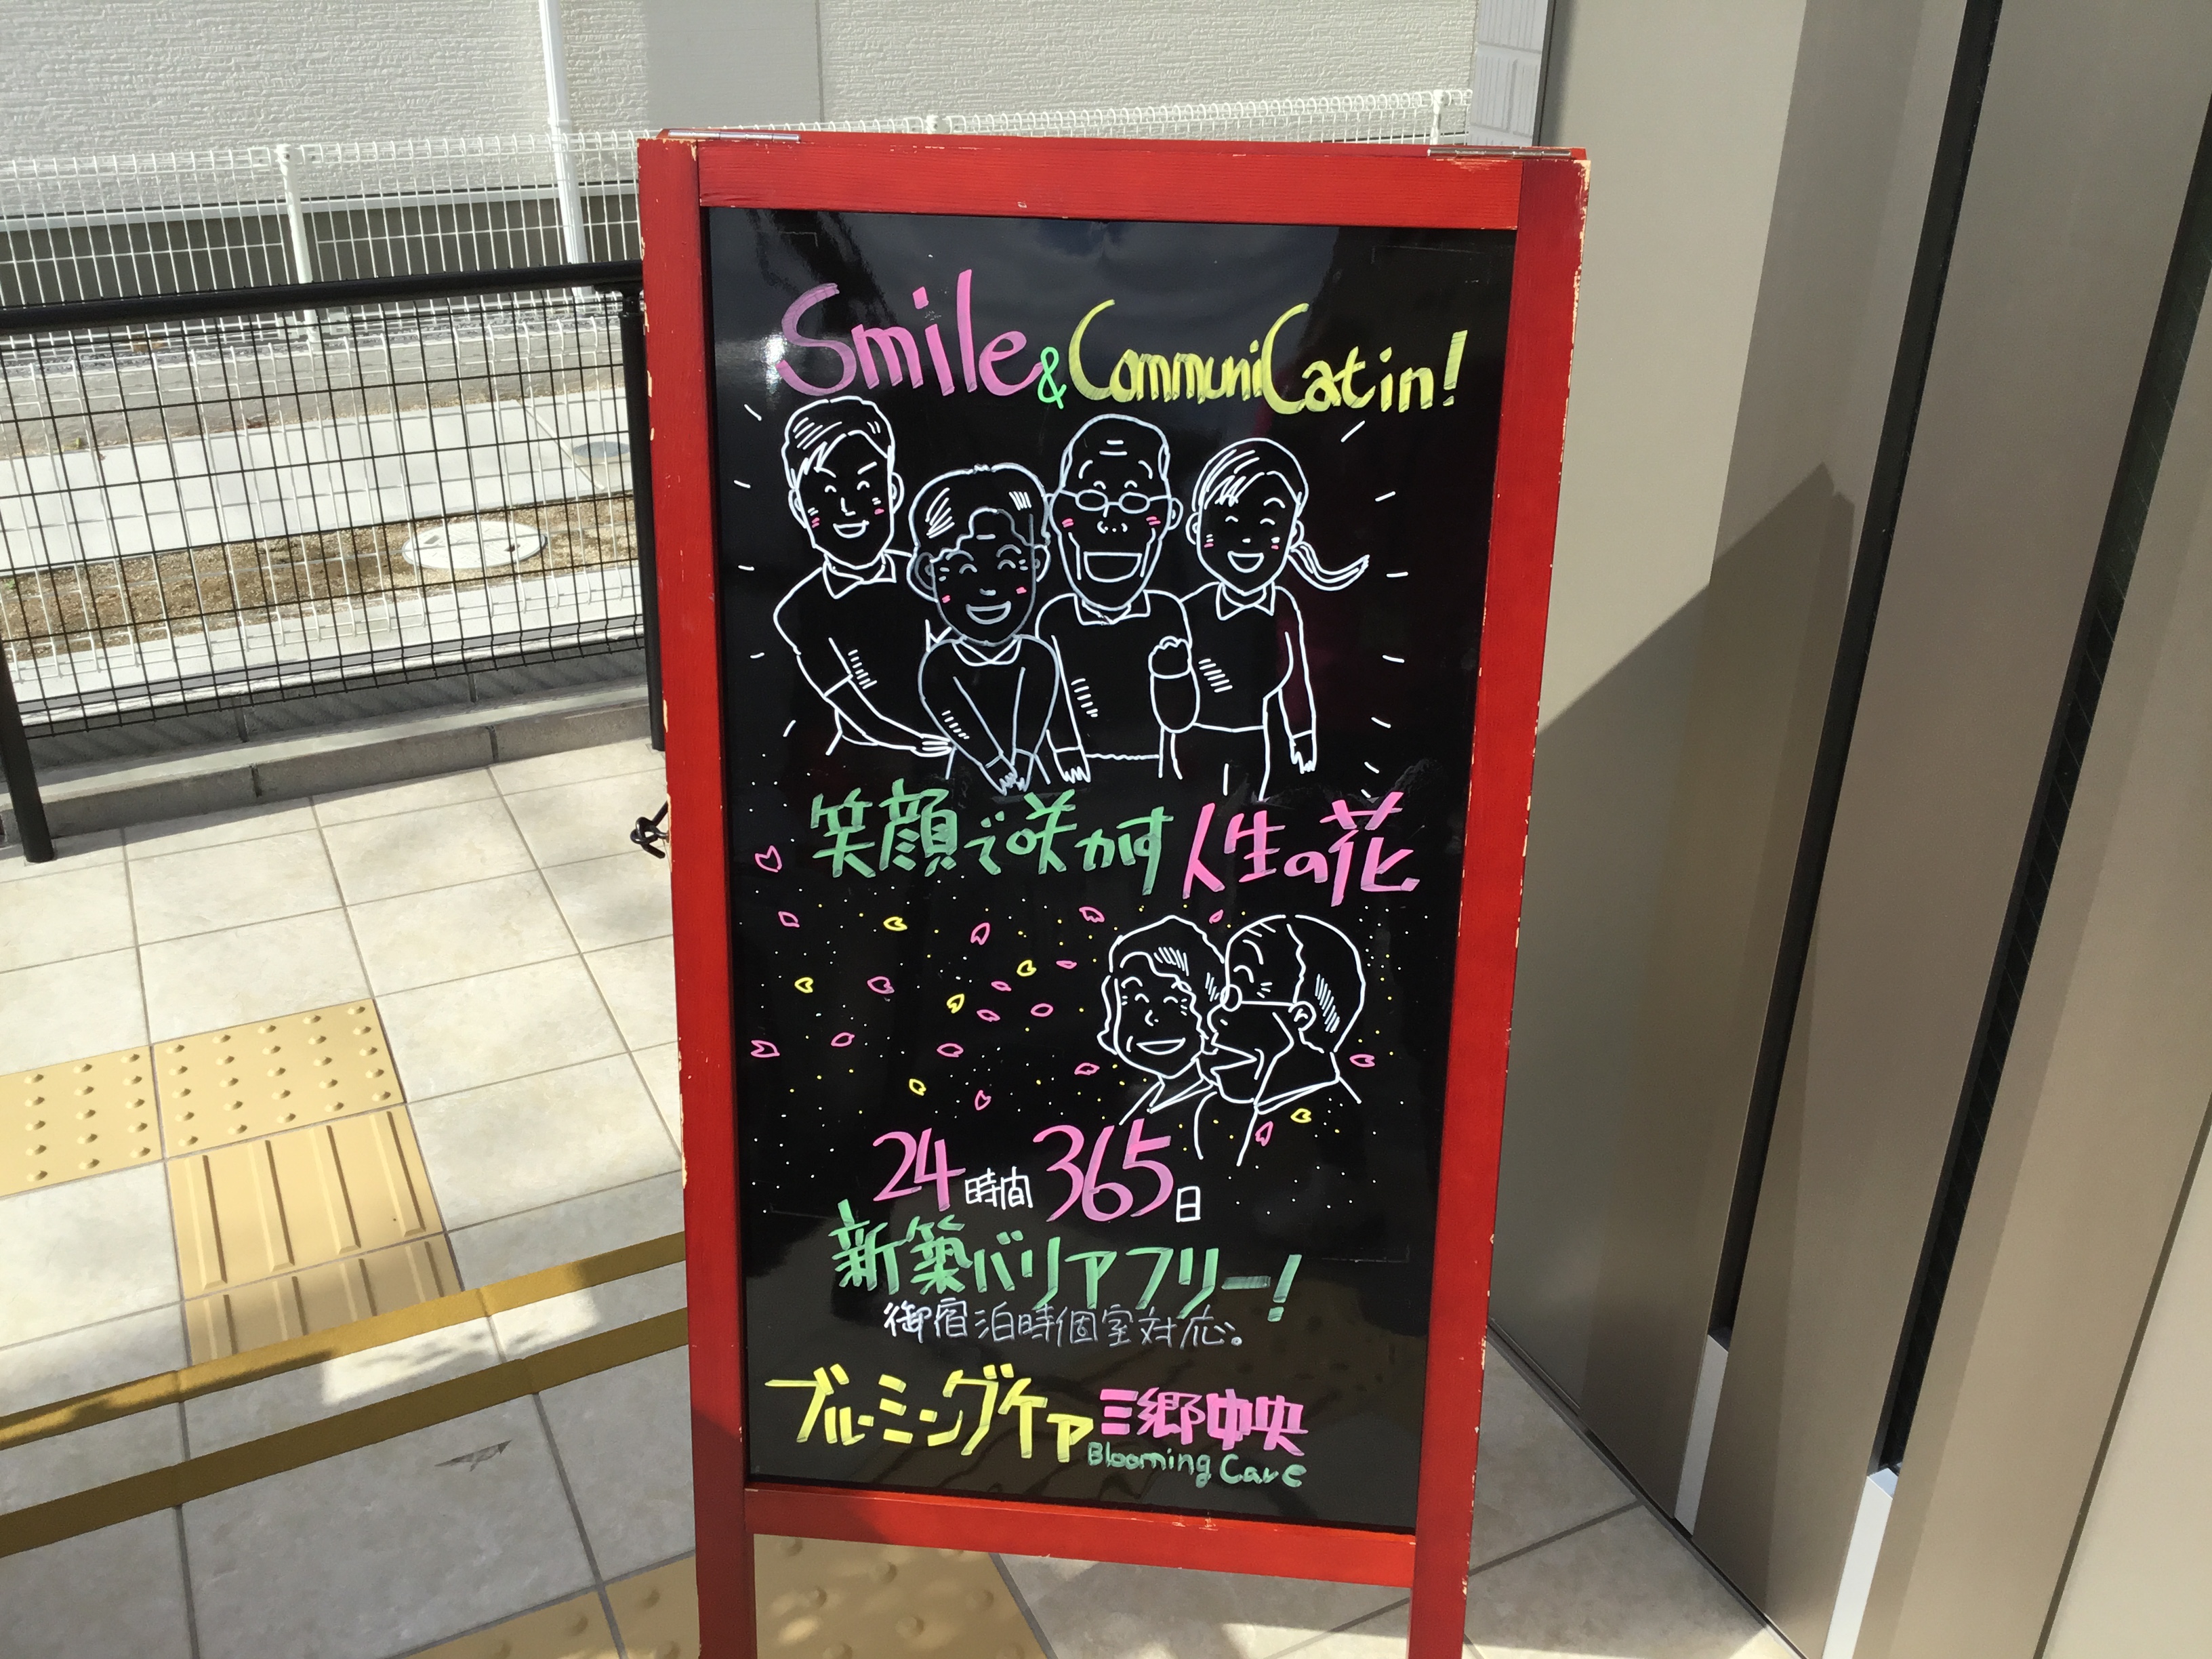 Smile & CommuniCatin!
笑顔で咲かす人生の花
24時間 365日
新築バリアフリー!
御宿泊時個室対応。
ブルーミングケア三郷中央
Blooming Care